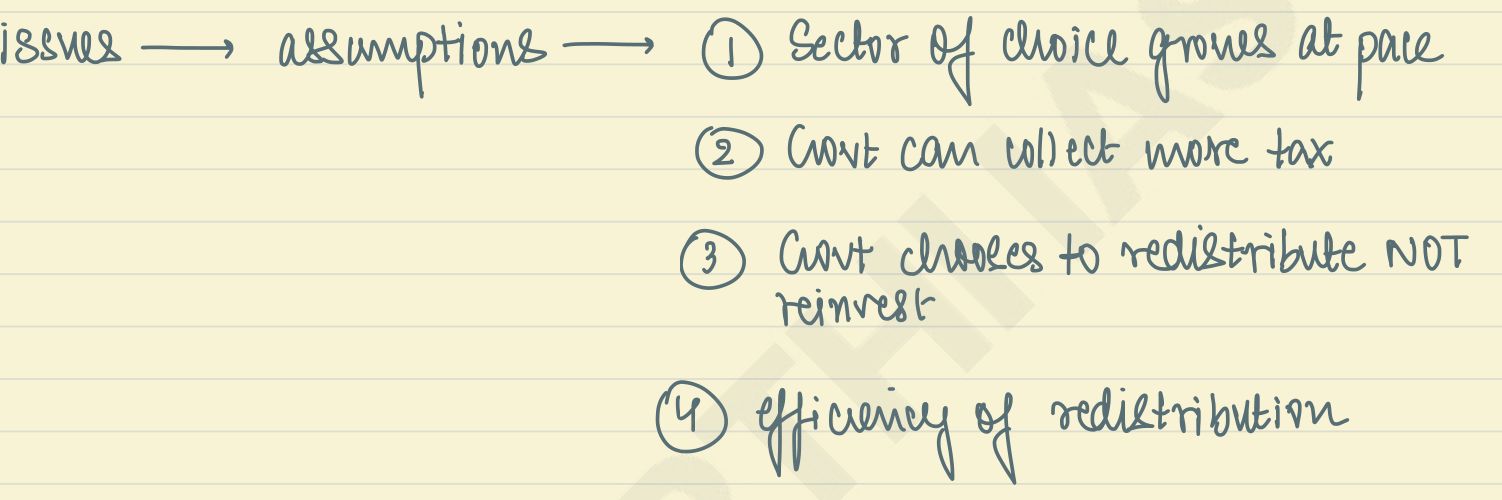 issues → assumptions → ① Sector of choice grows at pace
② Govt can collect more tax
③ Govt chooses to redistribute NOT
reinvest
④ efficiency of redistribution